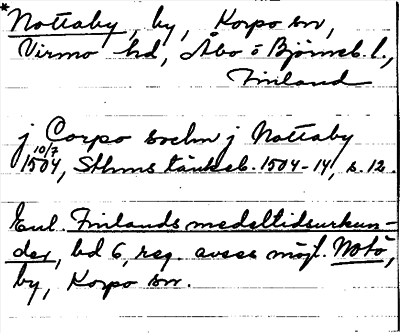 *Nottaby, by, Korpo sn,
Virmo hd, Åbo o Björneb. l.,
Finland
j Corpo sochn j Nottaby
10/7
1504, Sthms tänkeb. 1504-14, s. 12.
Enl. Finlands medeltidsurkun-
der, bd 6, reg. avses möjl. Notö,
by, Korpo sn.